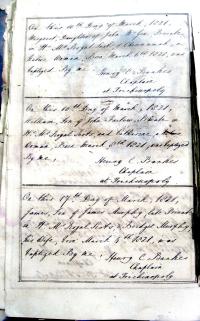 On this 10th Day of March, 1831,
Margaret, Daughter of John
in His M. Royal
Native Woman, Born March 6th 1831, was
baptized By me,
Henry C. Bankes
Chaplain
at Trichinopoly
On this 10th Day of March, 1831,
William, Son of John
M. Royal and Catherine, a
Woman Born March 8th 1831, was baptized
By me,
Henry C. Bankes
Chaplain
at Trichinopoly
On this 17th Day of March, 1831,
James, Son of James Murphy, late Private
in His M. Royal & Bridget Murphy,
his Wife, Born March 4th 1831, was
baptized By me
Henry C. Bankes
Chaplain
at Trichinopoly